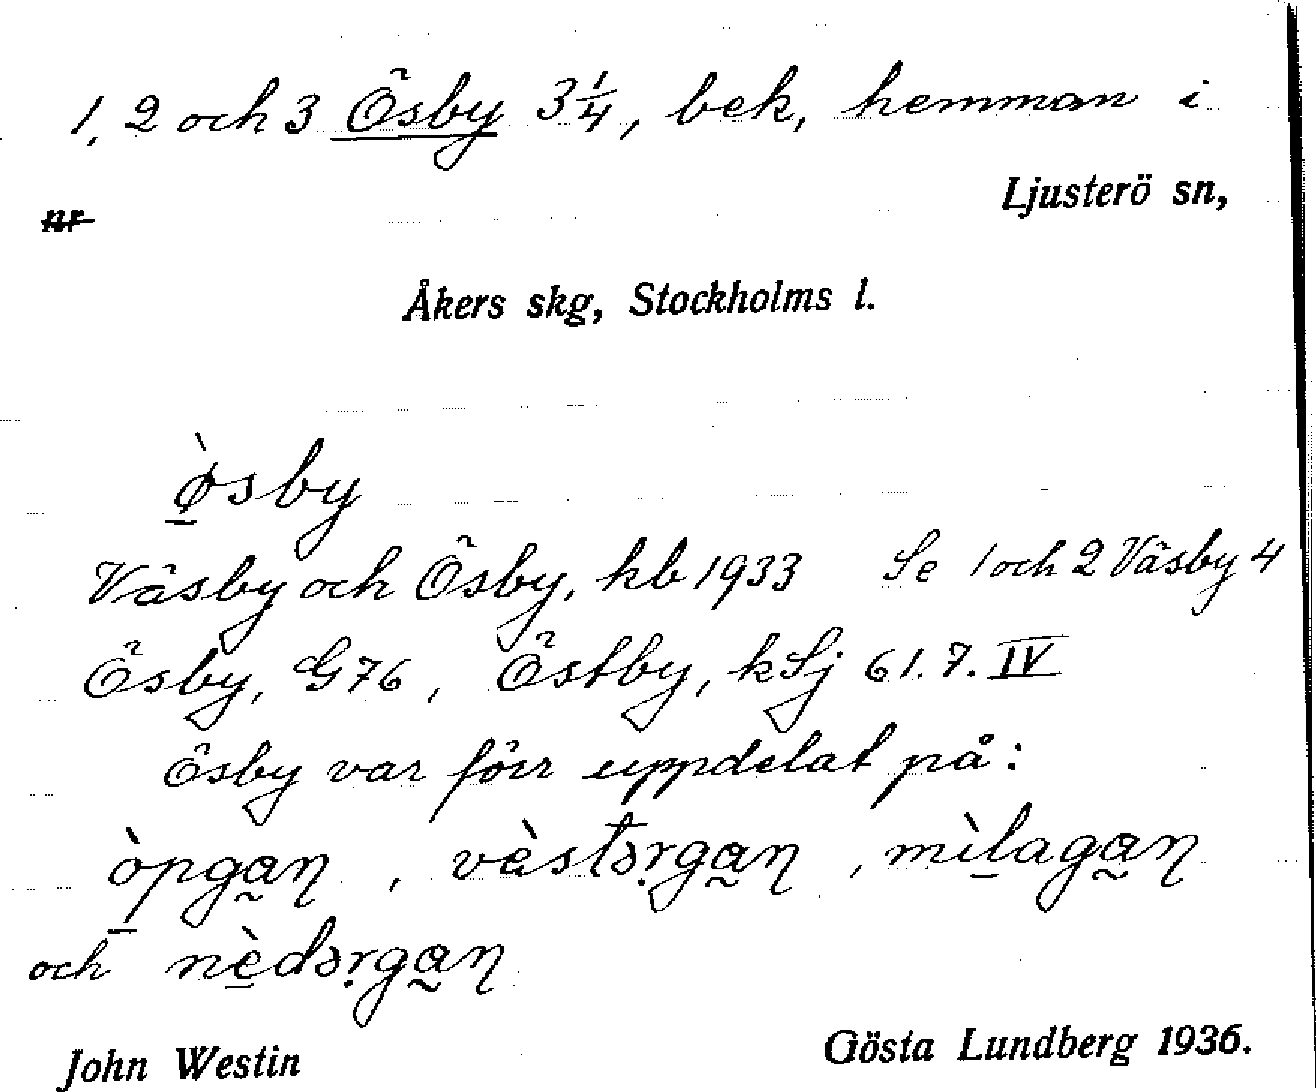 1, 2 och 3 Ösby 3 1/4, bek, hemman i
Ljusterö sn,
nr
Åkers skg, Stockholms l.
ø̀sby
Väsby och Ösby, kb 1933 Se 1 och 2 Väsby 4
Ösby, G 76, Östby, kSj 61.7.IV
Ösby var förr uppdelat på:
òpga̰ŋ, vèstəṛga̰ŋ, mìlaga̰ŋ
och nèdəṛga̰ŋ
John Westin
Gösta Lundberg 1936.